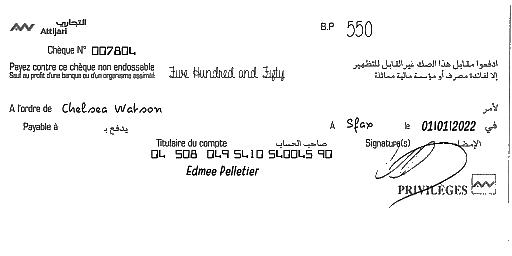 التجاري
Attijari
B.P 550
Chèque N° 007804
Payez contre ce chèque non endossable
Sauf au profit d'une banque ou d'un organisme assimilé
Five Hundred and Fifty
ادفعوا مقابل هذا الصك غير القابل للتظهير
إلا لفائدة مصرف أو مؤسسة مالية مماثلة
A l'ordre de Chelsea Watson لأمر
Payable à يدفع بـ A Sfax le 01/01/2022 في
Titulaire du compte صاحب الحساب Signature(s) الإمضاء
04 508 049 5410 540045 90
Edmee Pelletier
PRIVILÈGES